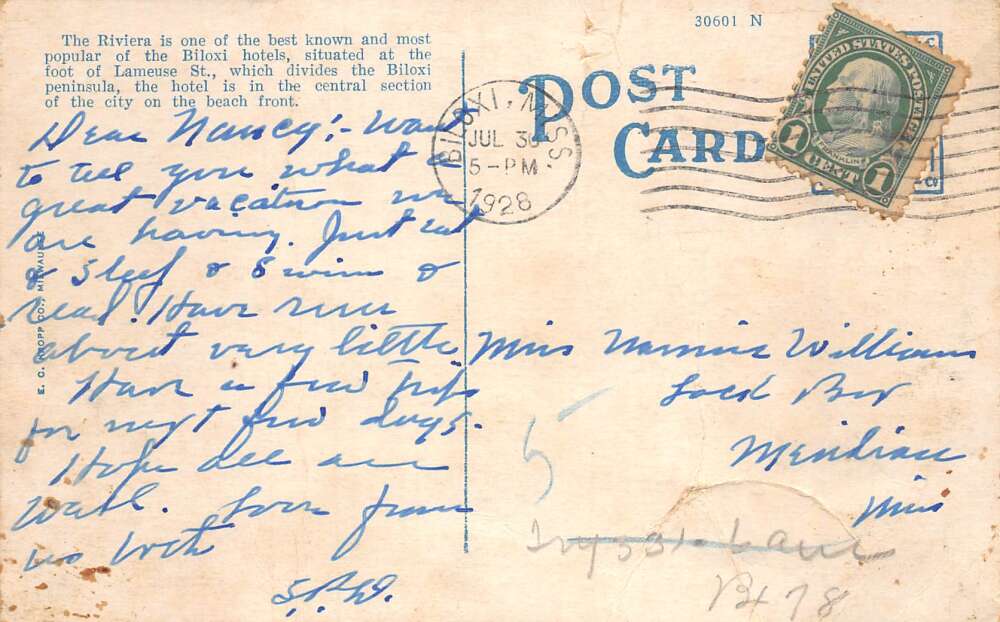 The Riviera is one of the best known and most
popular of the Biloxi hotels, situated at the
foot of Lameuse St., which divides the Biloxi
peninsula, the hotel is in the central section
of the city on the beach front.
Dear Nancy:- Want
to tell you what a
great vacation we
are having. Just eat
& sleep & swim &
read. Have run
about very little.
Have a few trips
for next few days.
Hope all are
well. Love from
us both
S.P.W.
E. C. KROPP CO., MILWAUKEE
30601 N
POST
CARD
BILOXI, MISS.
JUL 30
5-PM
1928
UNITED STATES POSTAGE
FRANKLIN
1 CENT 1
Miss Nannie Williams
Lock Box
Meridian
Miss
5
Bx 78